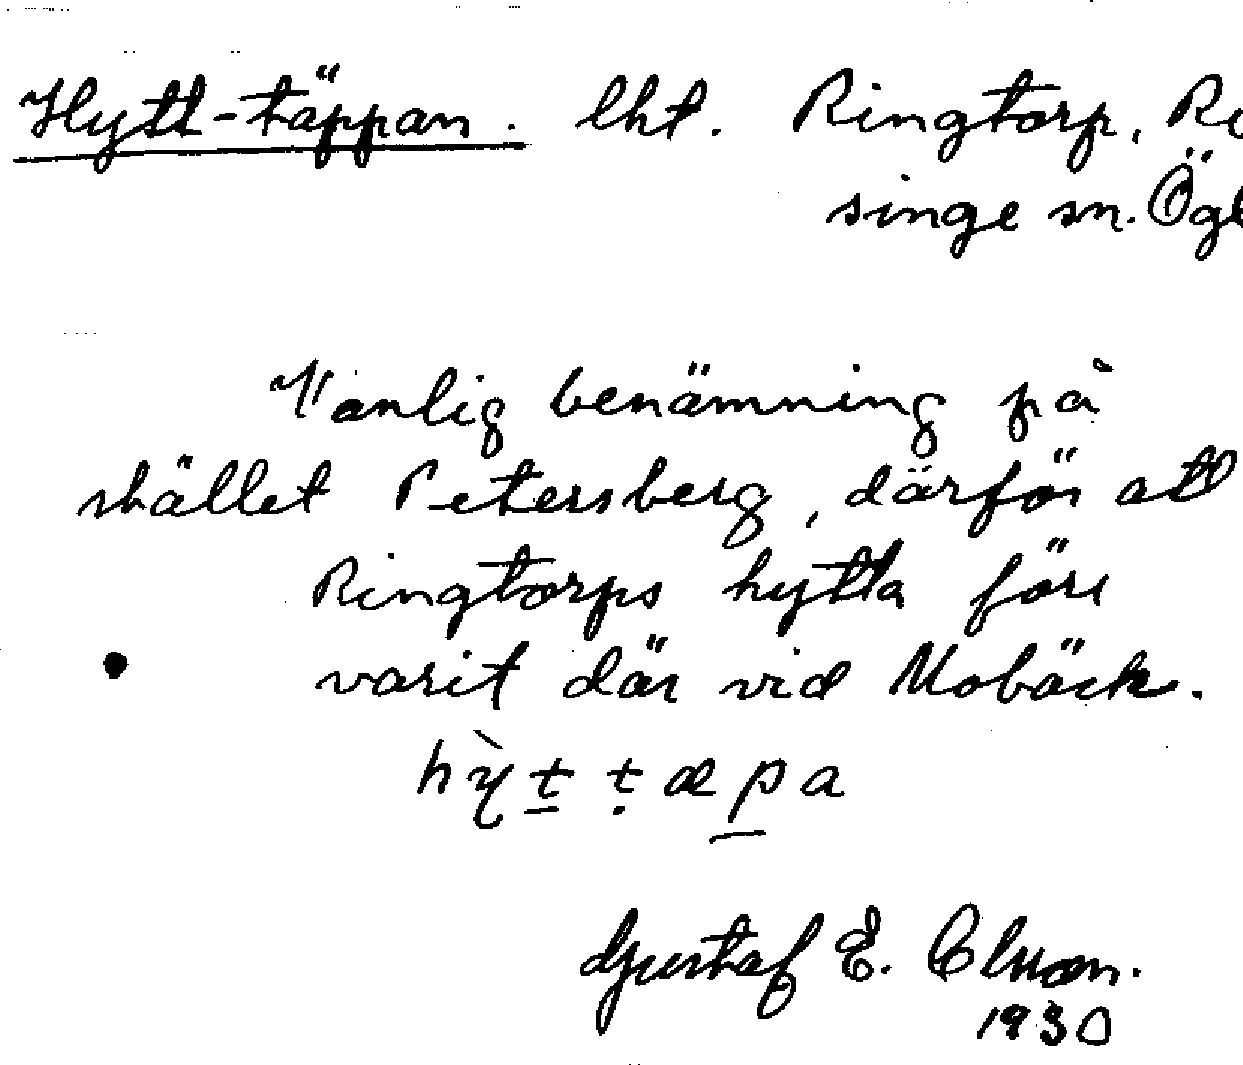 Hytt-täppan. lht. Ringtorp, Re
singe sn. Ögl
Vanlig benämning på
stället Petersberg, därför att
Ringtorps hytta förr
varit där vid Mobäck.
hỳt̲ ṭæp̲a
Gustaf E.
1930